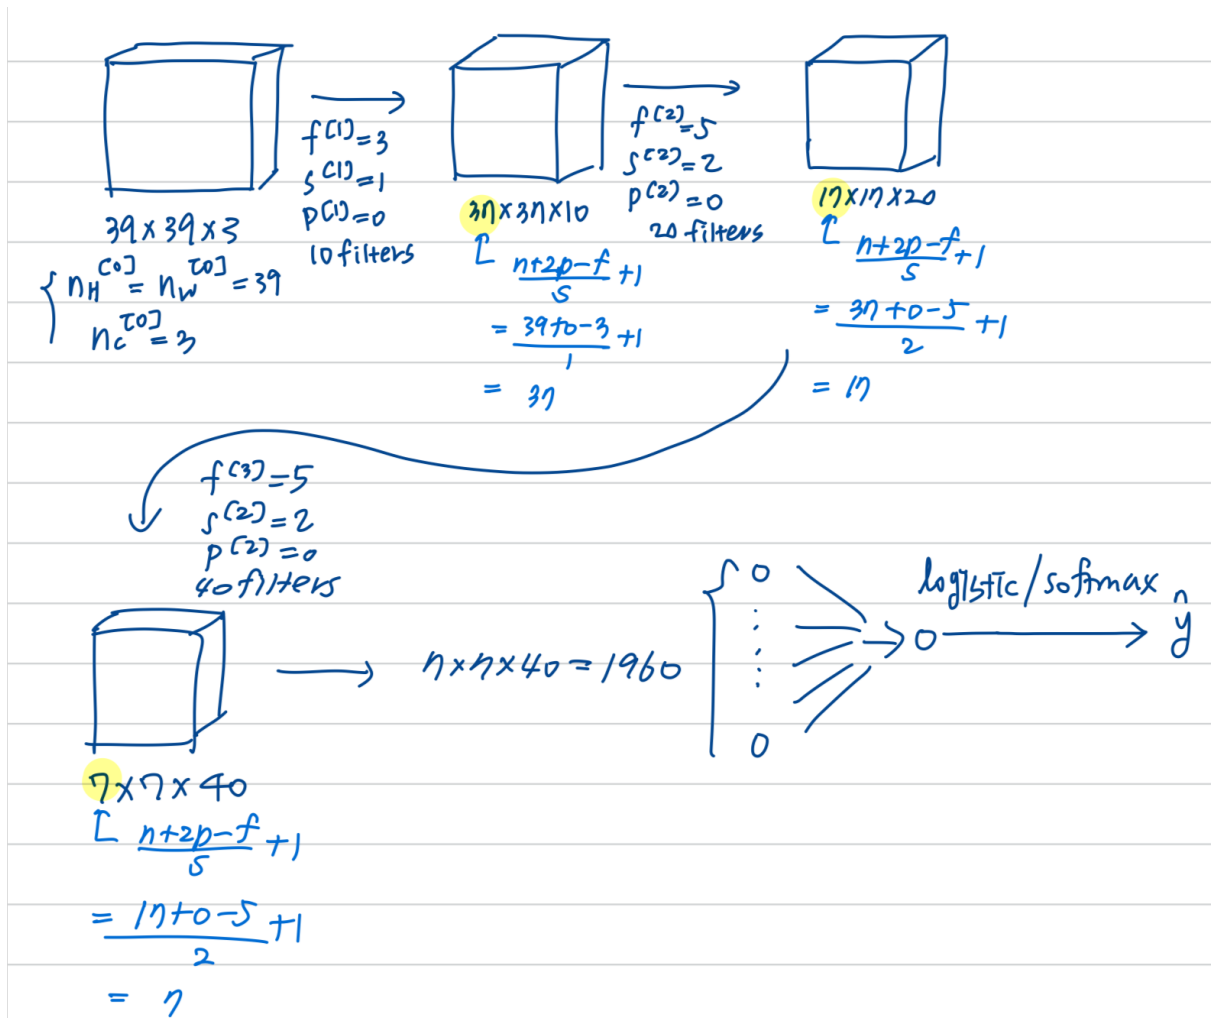 39×39×3
{ n_H^[0] = n_W^[0] = 39
n_c^[0] = 3
f^[1] = 3
s^[1] = 1
p^[1] = 0
10 filters
37×37×10
[ (n+2p-f)/s + 1
= (39+0-3)/1 + 1
= 37
f^[2] = 5
s^[2] = 2
p^[2] = 0
20 filters
17×17×20
[ (n+2p-f)/s + 1
= (37+0-5)/2 + 1
= 17
f^[3] = 5
s^[2] = 2
p^[2] = 0
40 filters
7×7×40
[ (n+2p-f)/s + 1
= (17+0-5)/2 + 1
= 7
7×7×40 = 1960
logistic/softmax
ŷ